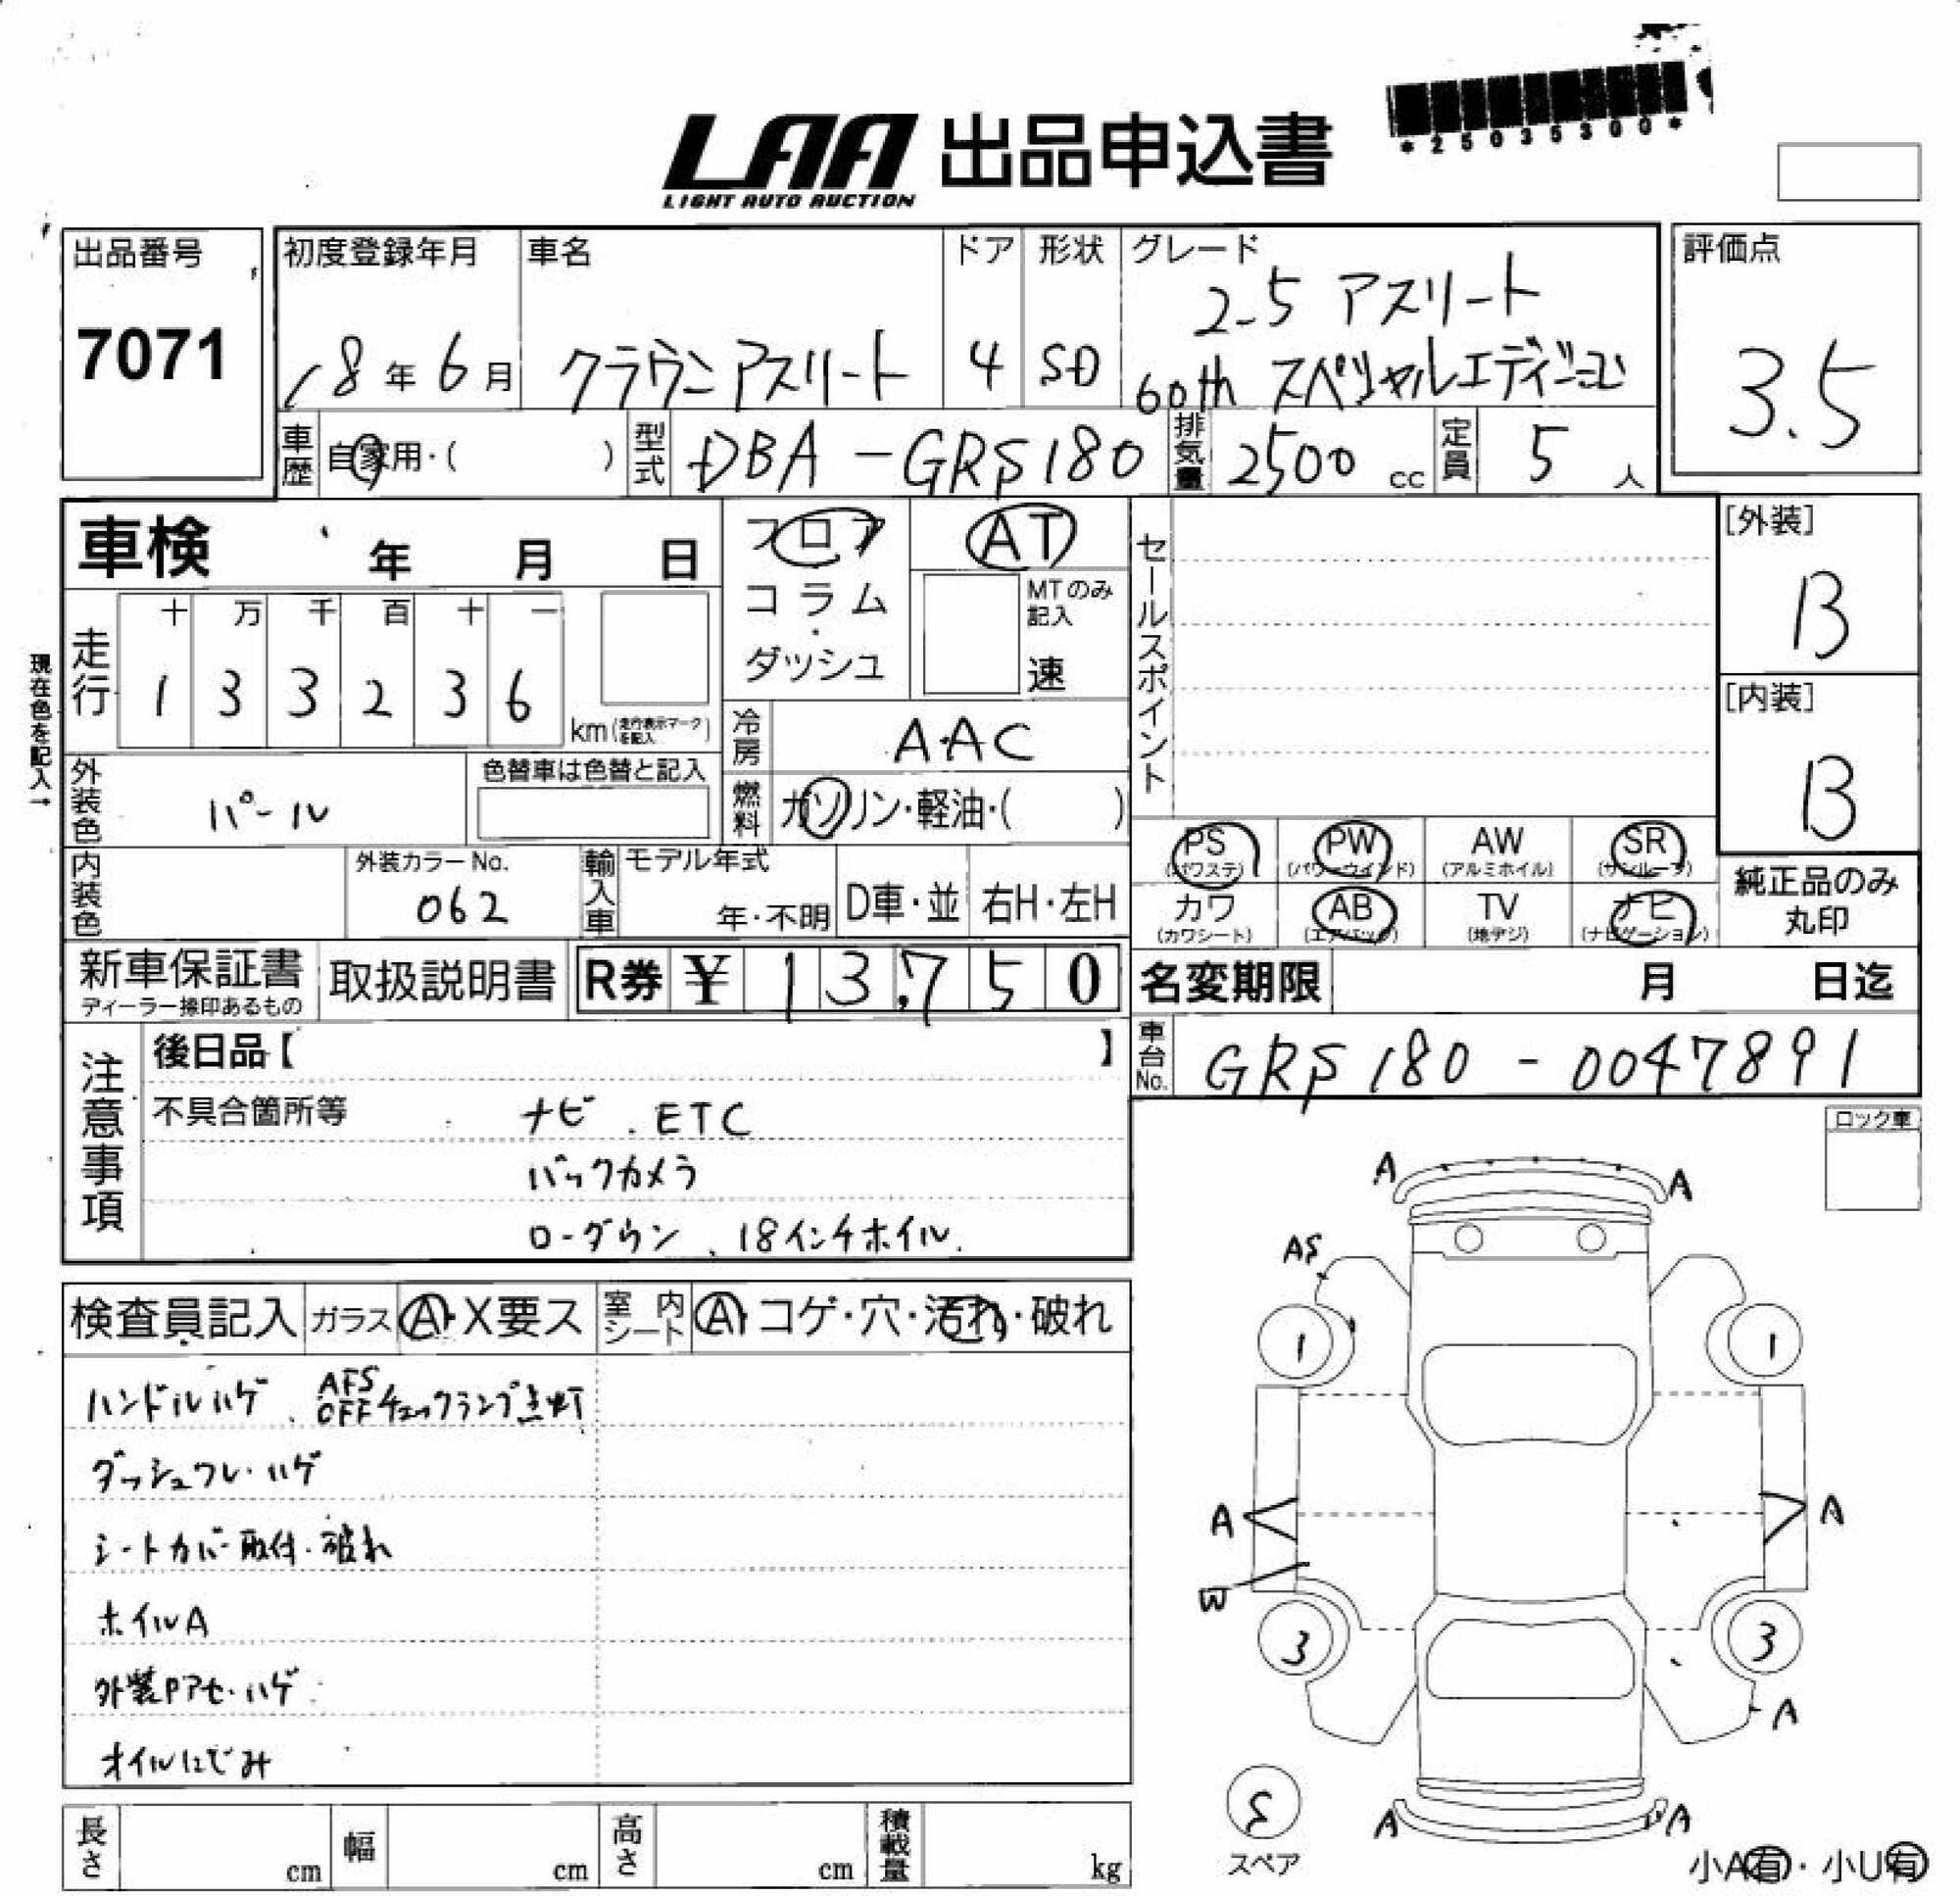 *25035300*
LAA 出品申込書
LIGHT AUTO AUCTION
出品番号
7071
初度登録年月
18年6月
車名
クラウンアスリート
ドア
4
形状
SD
グレード
2.5 アスリート
60th スペシャルエディション
評価点
3.5
車歴
自家用・( )
型式
DBA-GRS180
排気量
2500 cc
定員
5 人
車検 年 月 日
フロア
コラム
・
ダッシュ
AT
MTのみ記入
速
セールスポイント
[外装]
B
[内装]
B
現在色を記入→
走行
十 万 千 百 十 一
1 3 3 2 3 6
km(走行表示マークを記入)
冷房
AAC
燃料
ガソリン・軽油・( )
外装色
パール
色替車は色替と記入
内装色
外装カラーNo.
062
輸入車
モデル年式
年・不明
D車・並
右H・左H
PS
(パワステ)
PW
(パワーウインド)
AW
(アルミホイル)
SR
(サンルーフ)
カワ
(カワシート)
AB
(エアバッグ)
TV
(地デジ)
ナビ
(ナビゲーション)
純正品のみ
丸印
新車保証書
ディーラー捺印あるもの
取扱説明書
R券 ¥ 13,750
名変期限 月 日迄
車台No.
GRS180-0047891
注意事項
後日品【 】
不具合箇所等
ナビ.ETC
バックカメラ
ローダウン、18インチホイル.
ロック車
検査員記入
ガラス
A・X要ス
室内シート
A・コゲ・穴・汚れ・破れ
ハンドルハゲ、AFS OFFチェックランプ点灯
ダッシュワレ・ハゲ
シートカバー取付・破れ
ホイルA
外装Pアセ・ハゲ
オイルにじみ
A A
AS
1 1
A A
W
3 3
A
A A
S
スペア
小A有・小U有
長さ cm
幅 cm
高さ cm
積載量 kg